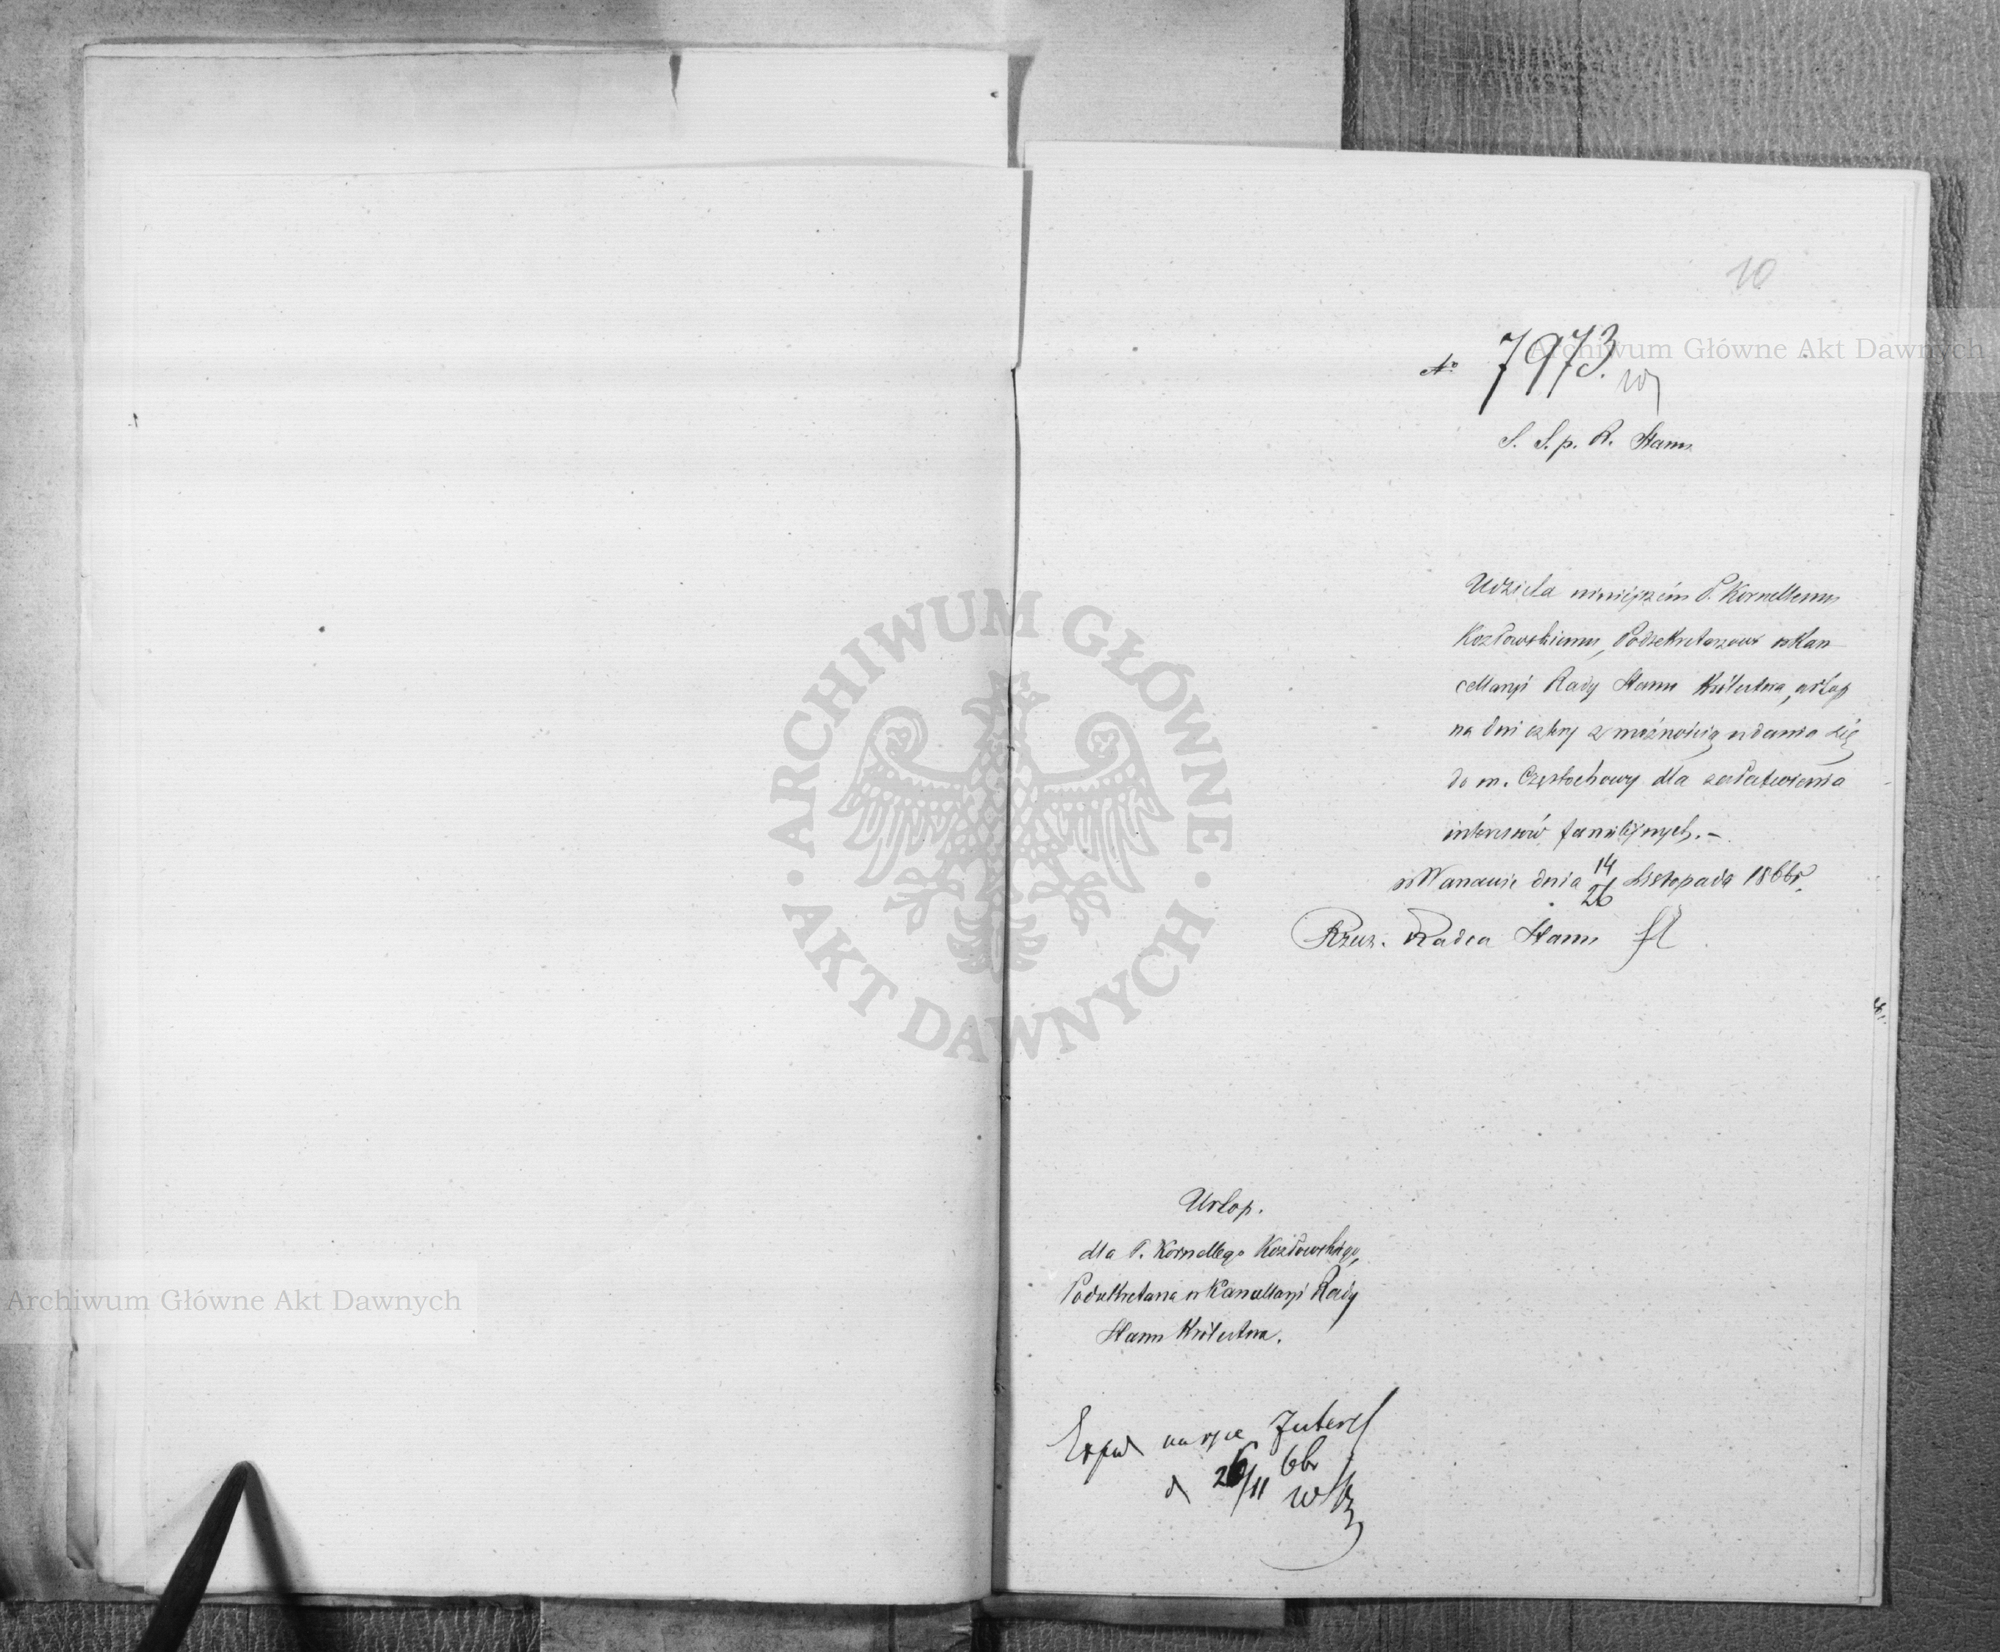 10
№ 7973.
S. S. p. R. Stanu
Udziela niniejszém P. Kornellemu
Kozłowskiemu, Podsekretarzowi w Kan-
cellaryi Rady Stanu Królestwa, urlop
na dni cztery z możnością udania się
do m. Częstochowy dla załatwienia
interesów familijnych. –
w Warszawie dnia 14/26 Listopada 1866 r.
Rzecz. Radca Stanu
Urlop.
dla P. Kornellego Kozłowskiego,
Podsekretarza w Kancellaryi Rady
Stanu Królestwa.
na ręce Interes
d 26/11 66
Archiwum Główne Akt Dawnych
Archiwum Główne Akt Dawnych
ARCHIWUM GŁÓWNE · AKT DAWNYCH ·